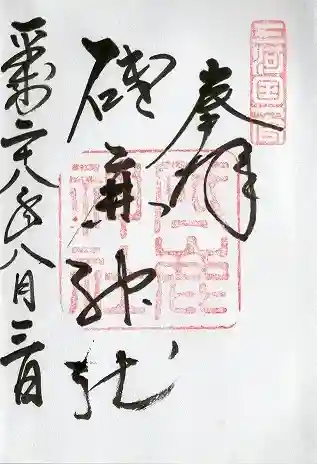 三河国一宮
奉拝
砥鹿神社
砥鹿神社
平成二十八年八月三日